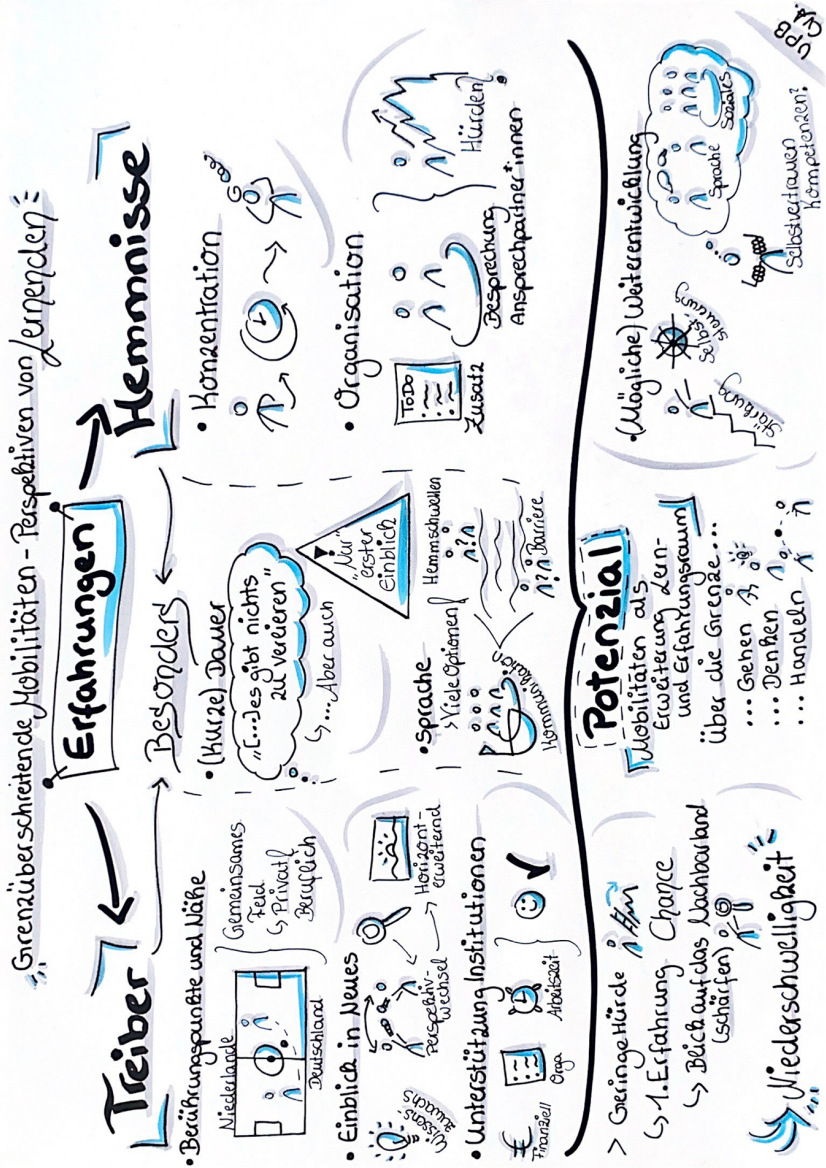 Grenzüberschreitende Mobilitäten - Perspektiven von Lernenden
Erfahrungen
Treiber
• Berührungspunkte und Nähe
Niederlande
Deutschland
Gemeinsames
Feld
↳ Privat/
Beruflich
• Einblick in Neues
Wissens-
zuwachs
Perspektiv-
wechsel
Horizont-
erweiternd
• Unterstützung Institutionen
Finanziell
Orga
Arbeitszeit
Besonders
• (Kurze) Dauer
"[...]es gibt nichts
zu verlieren"
↳ ... Aber auch
"Nur"
erster
Einblick
• Sprache
> Viele Optionen!
Kommunikation
Hemmschwellen
?
?
Barriere
Hemmnisse
• Konzentration
• Organisation
ToDo
Zusatz
Besprechung
Ansprechpartner*innen
Hürden
> Geringe Hürde
↳ 1. Erfahrung Chance
↳ Blick auf das Nachbarland
(schärfen)
Niederschwelligkeit
Potenzial
Mobilitäten als
Erweiterung Lern-
und Erfahrungsraum
Über die Grenze...
... Gehen
... Denken
... Handeln
• (Mögliche) Weiterentwicklung
Stärkung
Selbst-
steuerung
Sprache
Soziales
Selbstvertrauen
Kompetenzen?
UPB